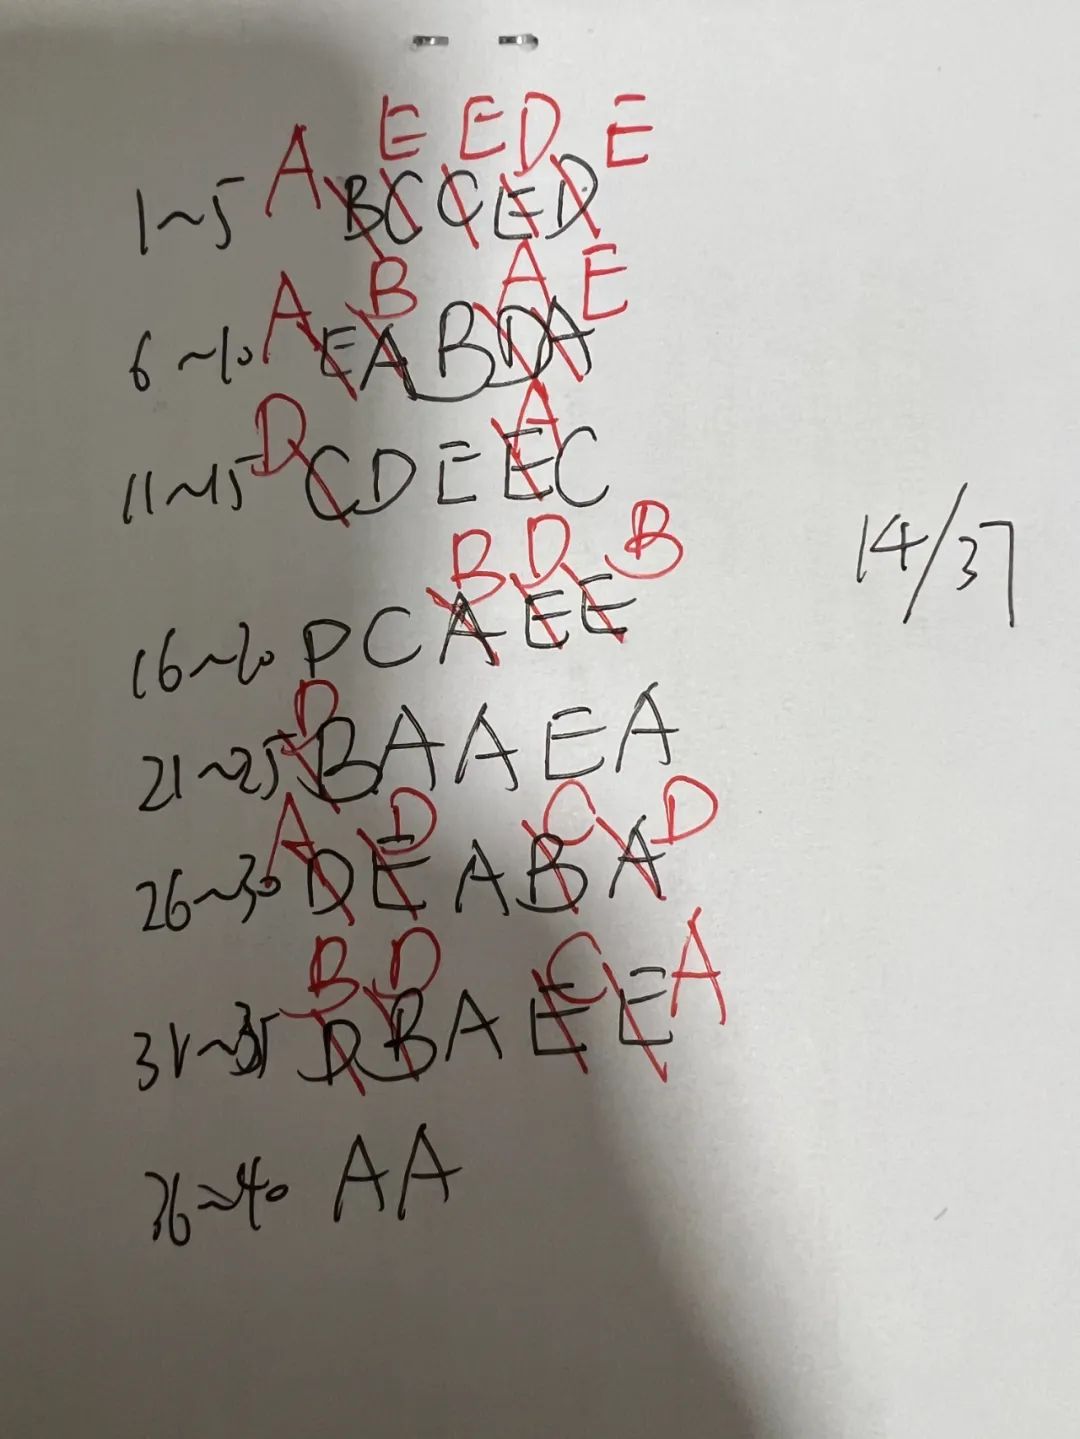 A E E D E
1~5 B C C E D
A B A E
6~10 E A B D A
D A
11~15 C D E E C
B D B
16~20 D C A E E
14/37
D
21~25 B A A E A
A D C D
26~30 D E A B A
B D C A
31~35 D B A E E
36~40 A A